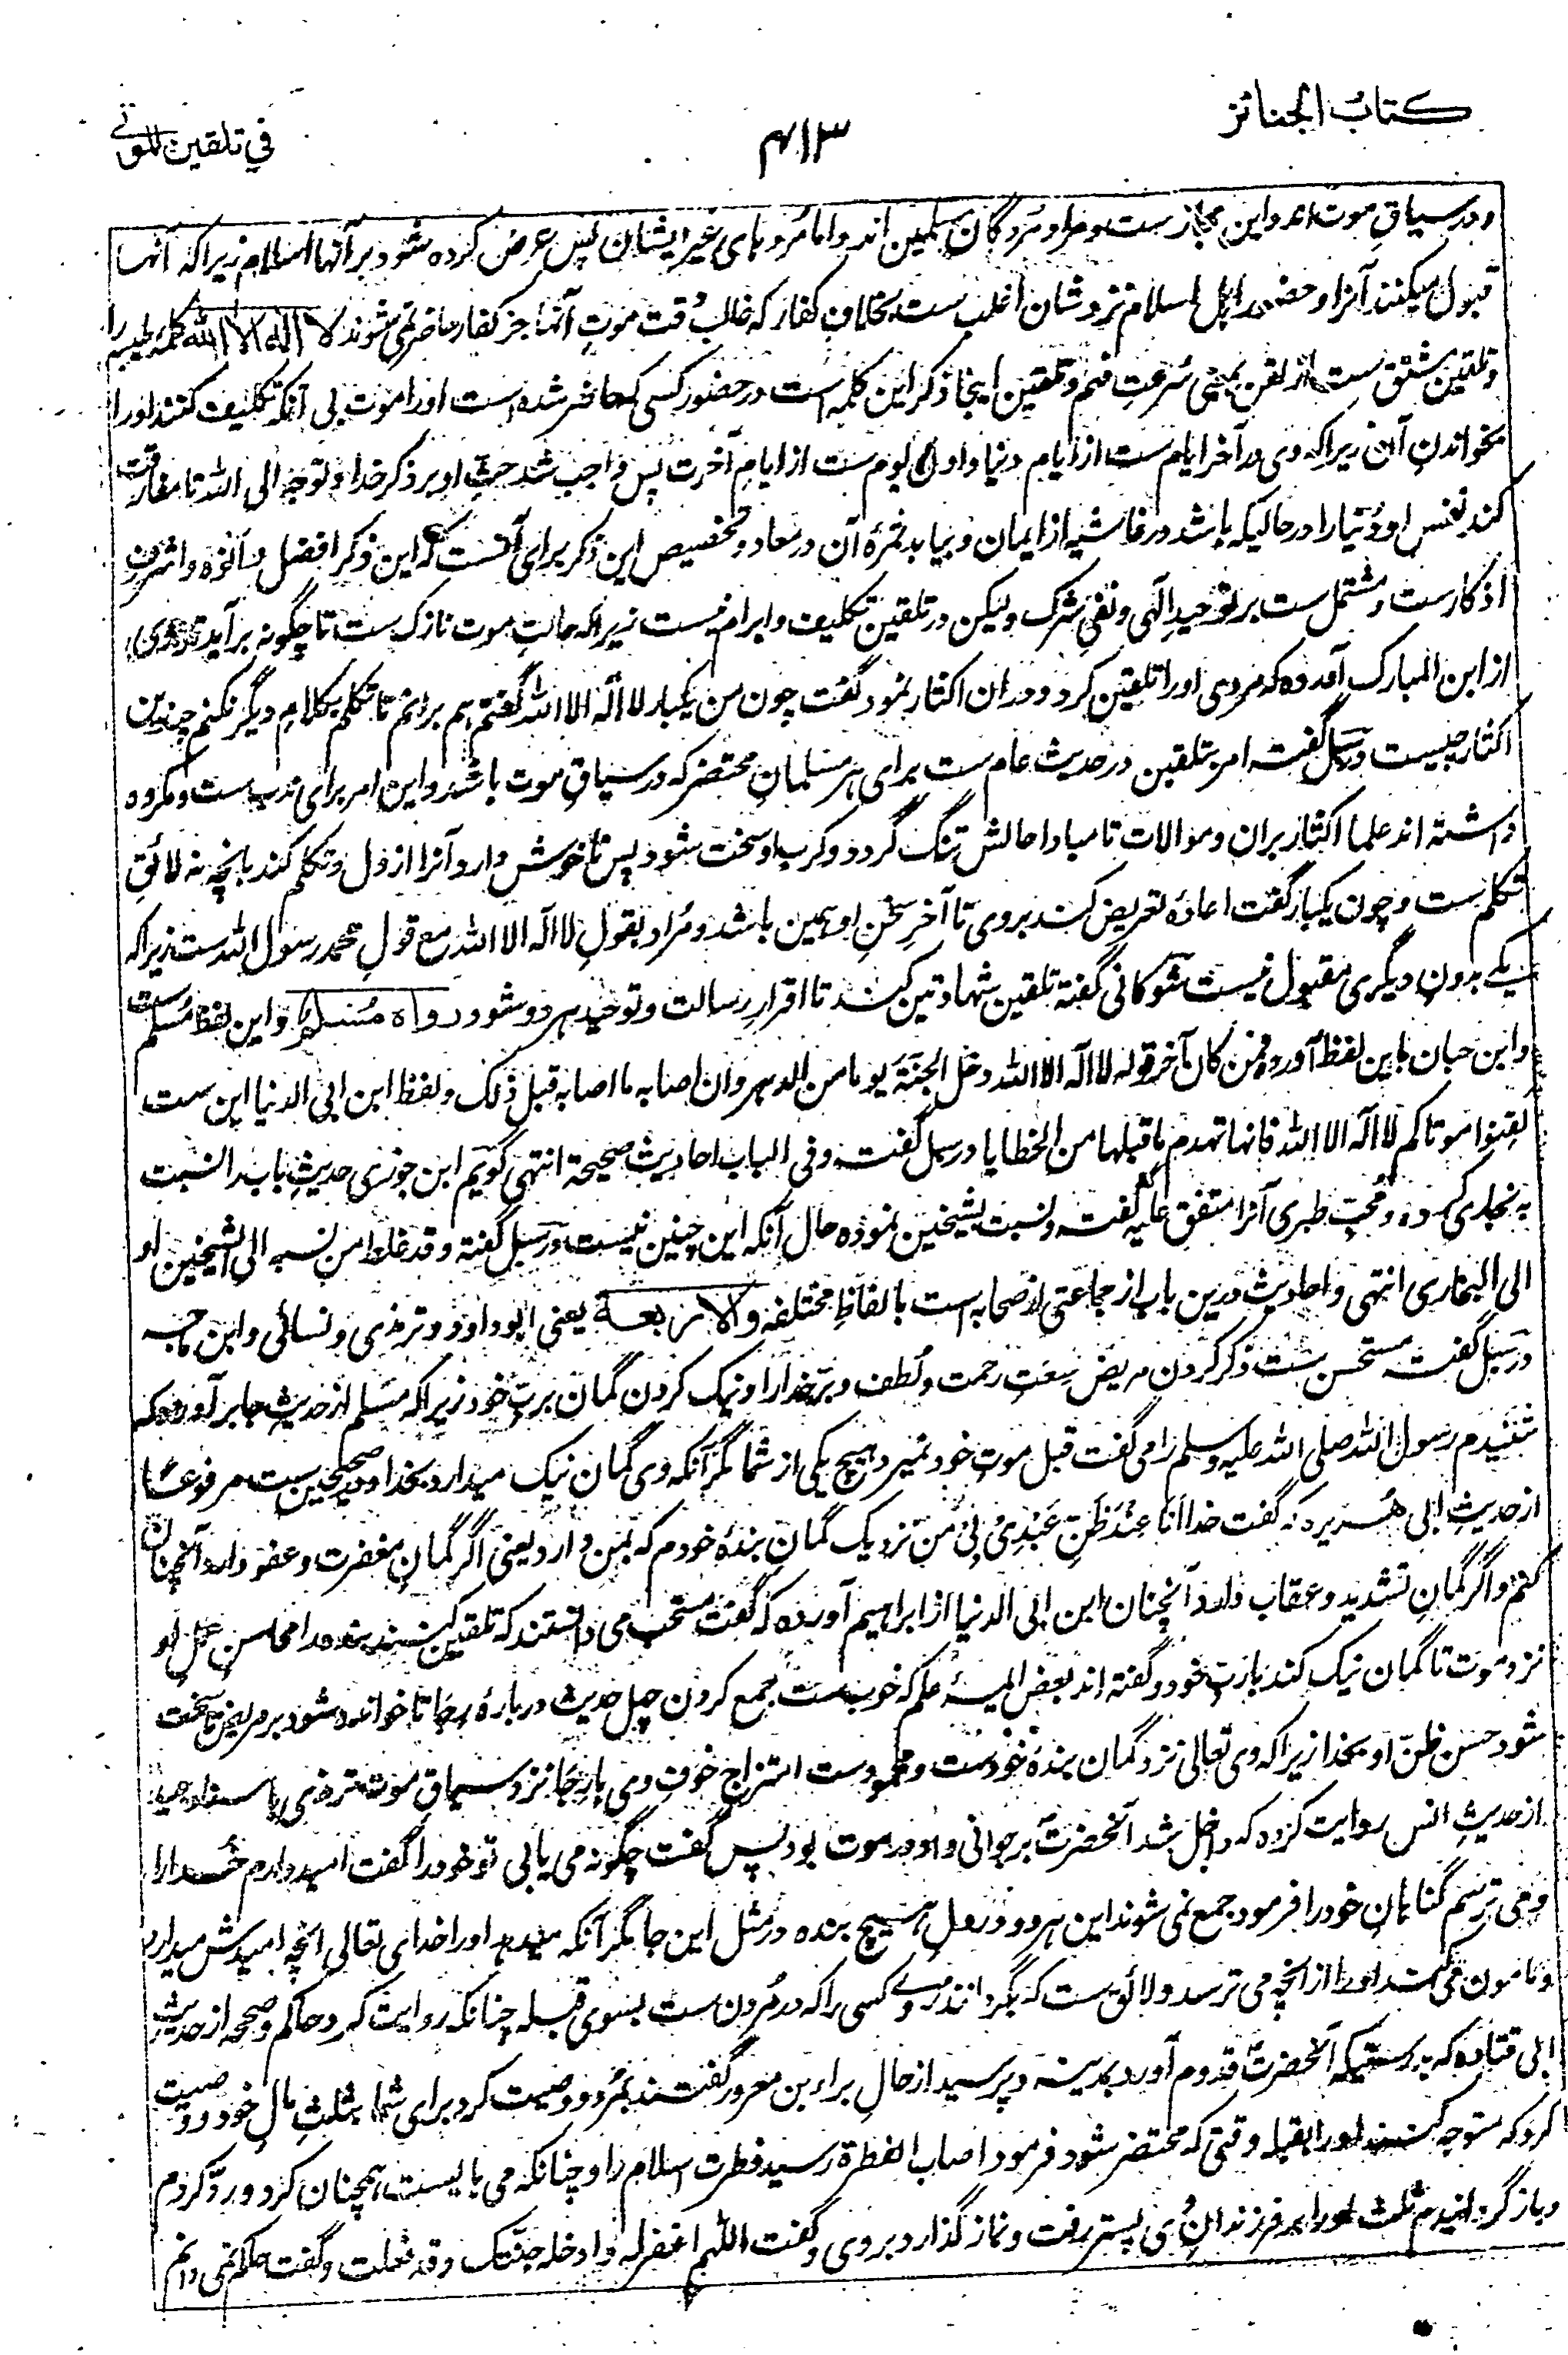 كتاب الجنائز
۴۱۳
في تلقين الموتى
و در سیاقِ موت اند و این مجاز ست و مراد مُردگانِ مسلمین اند و اما مُردهای غیر ایشان پس عرض کرده شود بر آنها اسلام زیراکه آنها
قبول میکنند آنرا و حضور اهل اسلام نزد شان اغلب ست بخلافِ کفار که غالب وقت موتِ آنها جز کفار حاضر نمی شوند لا اله الا الله کلمۀ طیبه را
و تلقین مشتق ست از لقن بمعنی سُرعتِ فهم و تلقین اینجا ذکر این کلمه است در حضور کسی که حاضر شده است اورا موت بی آنکه تکلیف کنند اورا
بخواندنِ آن زیراکه وی در آخر ایام ست از ایام دنیا و اول یوم ست از ایامِ آخرت پس واجب شد حثِّ او بر ذکر خدا و توجه الی الله تا مفارقت
کند نفس او دُنیا را در حالیکه باشد در غاشیه از ایمان و بیابد ثمرۀ آن در معاد و تخصیص این ذکر برای آنست که این ذکر افضل و اشرف
اذکار ست و مشتمل ست بر توحیدِ الٰهی و نفیِ شرک و لیکن در تلقین تکلیف و ابرام نیست زیراکه حالتِ موت نازک ست تا چگونه برآید ترمذی
از ابن المبارک آورده که مردی اورا تلقین کرد و در ان اکثار نمود گفت چون من یکبار لا اله الا الله گفتم هم برانم تا تکلم بکلامِ دیگر نکنم چندین
اکثار چیست در سبل گفته امر بتلقین در حدیث عام ست برای هر مسلمانِ محتضر که در سیاقِ موت باشد و این امر برای ندب ست و مکروه
داشته اند علما اکثار بران و موالات تا مبادا حالش تنگ گردد و کربِ او سخت شود پس ناخوش دارد آنرا از دل و تکلم کند بانچه نه لائقِ
تکلم ست و چون یکبار گفت اعادۀ تعریض کنند بروی تا آخرِ سخنِ او همین باشد و مُراد بقولِ لا اله الا الله مع قولِ محمد رسول الله ست زیراکه
یکے بدونِ دیگری مقبول نیست شوکانی گفته تلقینِ شهادتین کنند تا اقرارِ رسالت و توحید هر دو شود رواه مسلم و این لفظ مُسلم ست
و ابن حبان باین لفظ آورده فمن کان آخر قوله لا اله الا الله دخل الجنّة یوما من الدهر و ان اصابه ما اصابه قبل ذلک و لفظ ابن ابی الدنیا این ست
لقنوا موتاکم لا اله الا الله فانها تهدم ما قبلها من الخطایا در سبل گفته و فی الباب احادیث صحیحة انتهی گویم ابن جوزی حدیثِ باب را نسبت
به بخاری کرده و مُحبّ طبری آنرا متفق علیه گفته و نسبت بشیخین نموده حال آنکه این چنین نیست در سبل گفته و قد غلط من نسبه الی الشیخین او
الی البخاری انتهی و احادیث درین باب از جماعتی از صحابه است بالفاظِ مختلفه والاربعة یعنی ابو داود و ترمذی و نسائی و ابن ماجه
در سبل گفته مستحسن ست ذکر کردنِ مریض سعتِ رحمت و لُطف و برّ خدا را و نیک کردن گمان بربِّ خود زیراکه مسلم از حدیثِ جابر آورده که
شنیدم رسول الله صلی الله علیه وسلم را می گفت قبل موتِ خود نمیرد هیچ یکی از شما مگر آنکه وی گمان نیک میدارد بخدا و در صحیحین ست مرفوعًا
از حدیثِ ابی هریره که گفت خدا انا عِنْدَ ظَنِّ عَبْدِیْ بِیْ من نزدیک گمانِ بندۀ خودم که بمن دارد یعنی اگر گمانِ مغفرت و عفو دارد آنچنان
کنم و اگر گمانِ تشدید و عقاب دارد آنچنان ابن ابی الدنیا از ابراهیم آورده که گفت مستحب می دانستند که تلقین کنند بنده را محاسنِ عملِ او
نزد موت تا گمان نیک کند باربِّ خود و گفته اند بعض ائمۀ علم که خوب ست جمع کردن چهل حدیث دربارۀ رجا تا خوانده شود بر مریض تا سخت
شود حسن ظنّ او بخدا زیراکه وی تعالی نزد گمان بندۀ خودست و محمود ست امتزاج خوف وی با رجا نزد سیاقِ موت ترمذی باسناد جید
از حدیثِ انس روایت کرده که داخل شد آنحضرتؐ بر جوانی و او در موت بود پس گفت چگونه می یابی تو خود را گفت امیدوارم خدا را
و می ترسم گناهانِ خود را فرمود جمع نمی شوند این هر دو در دلِ هیچ بنده در مثل این جا مگر آنکه میدهد اورا خدای تعالی انچه امیدش میدارد
و مامون می کند اورا از انچه می ترسد و لائق ست که بگردانند روی کسی را که در مُردن ست بسوی قبله چنانکه روایت کرد حاکم و صححه از حدیث
ابی قتاده که بدرستیکه آنحضرتؐ قدوم آورد بمدینه و پرسید از حالِ براء بن معرور گفتند بمُرد و وصیت کرد برای شما بثلثِ مال خود و وصیت
کرد که متوجه کنند اورا بقبله وقتی که محتضر شود فرمود اصاب الفطرة رسید فطرتِ اسلام را و چنانکه می بایست همچنان کرد و رد کردم
و باز گردانیدم ثلث اورا بر فرزندانِ وی پستر رفت و نماز گذارد بروی و گفت اللهم اغفر له و ادخله جنّتک و قد فعلت و گفت حاکم نمی دانم